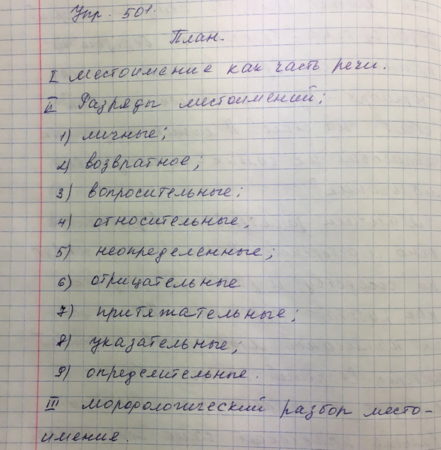 Упр. 501.
План.
I местоимение как часть речи.
II Разряды местоимений;
1) личные;
2) возвратное;
3) вопросительные;
4) относительные;
5) неопределенные;
6) отрицательные
7) притяжательные;
8) указательные;
9) определительные.
III морфологический разбор место-
имение.